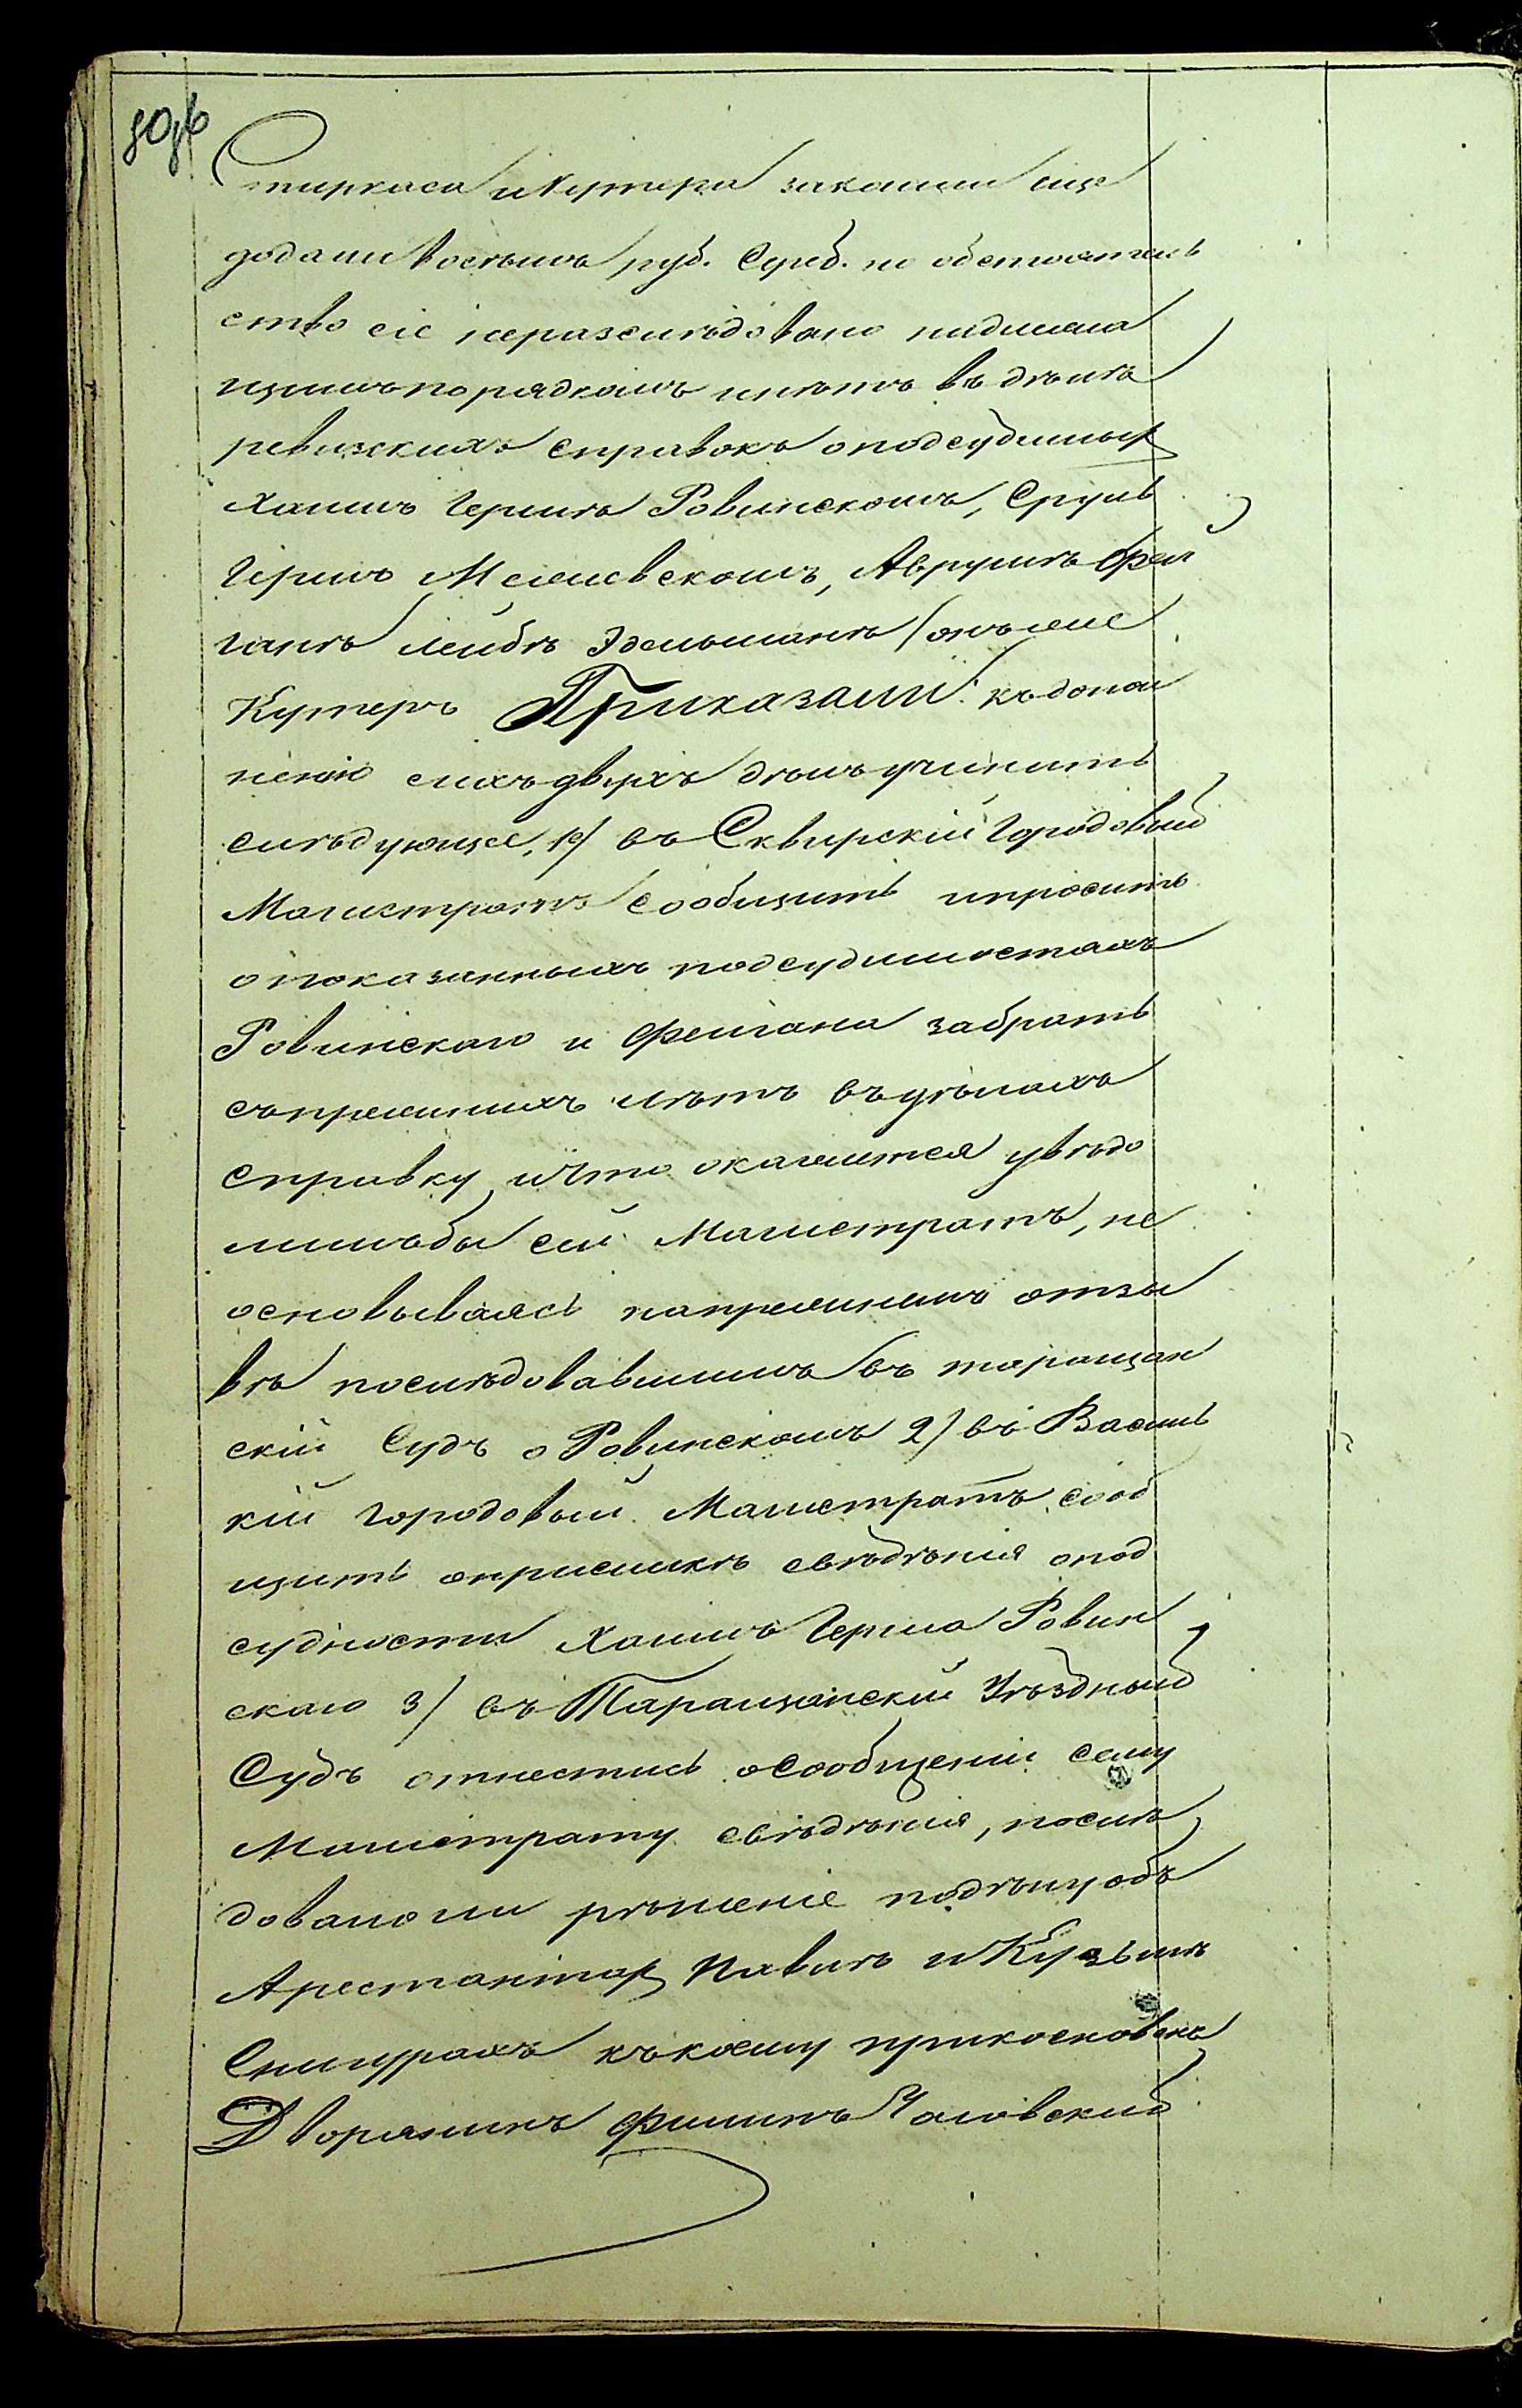 Стиркаса и Кутера закомин еще
додани восемь руб. Сереб. но обстоятель
ство сіе неразслѣдовано надлежа
щимъ порядкомъ инѣтъ въ дѣлѣ
ревизскихъ справокъ оподсудимых
Хаимъ Гершкѣ Ровинскомъ, Сруль
Гершѣ Межіевскомъ, Аврумъ Фей
ганѣ Лейбѣ Эдельманѣ (онъ же
Кутеръ Приказали: къ допол
ненію сихъ двухъ дѣлъ учинить
слѣдующее, 1е) въ Сквирскій Городовый
Магистратъ сообщить ипросить
опоказанныхъ подсудимостяхъ
Ровинскаго и Фейгана забрать
съпрежнихъ лѣтъ въдѣлахъ
справку ичто окажется увѣдо
милъбы сей Магистратъ, не
основываясь напрежнемъ отзы
вѣ послѣдовавшимъ въ таращан
скій Судъ о Ровинскомъ 2) въ Василь
кій городовый Магистратъ сооб
щить оприсылкѣ свѣдѣнія опод
судности Хаимъ Герша Ровин
скаго 3) въ Таращанскій Уѣздный
Судъ отнестись осообщеніи сему
Магистрату свѣдѣнія, послѣ
довалоли рѣшеніе подѣлу объ
Арестантах Павлѣ и Кузьмѣ
Снигурахъ къкоему прикосновенъ
Дворянинъ Филипъ Чаловскій